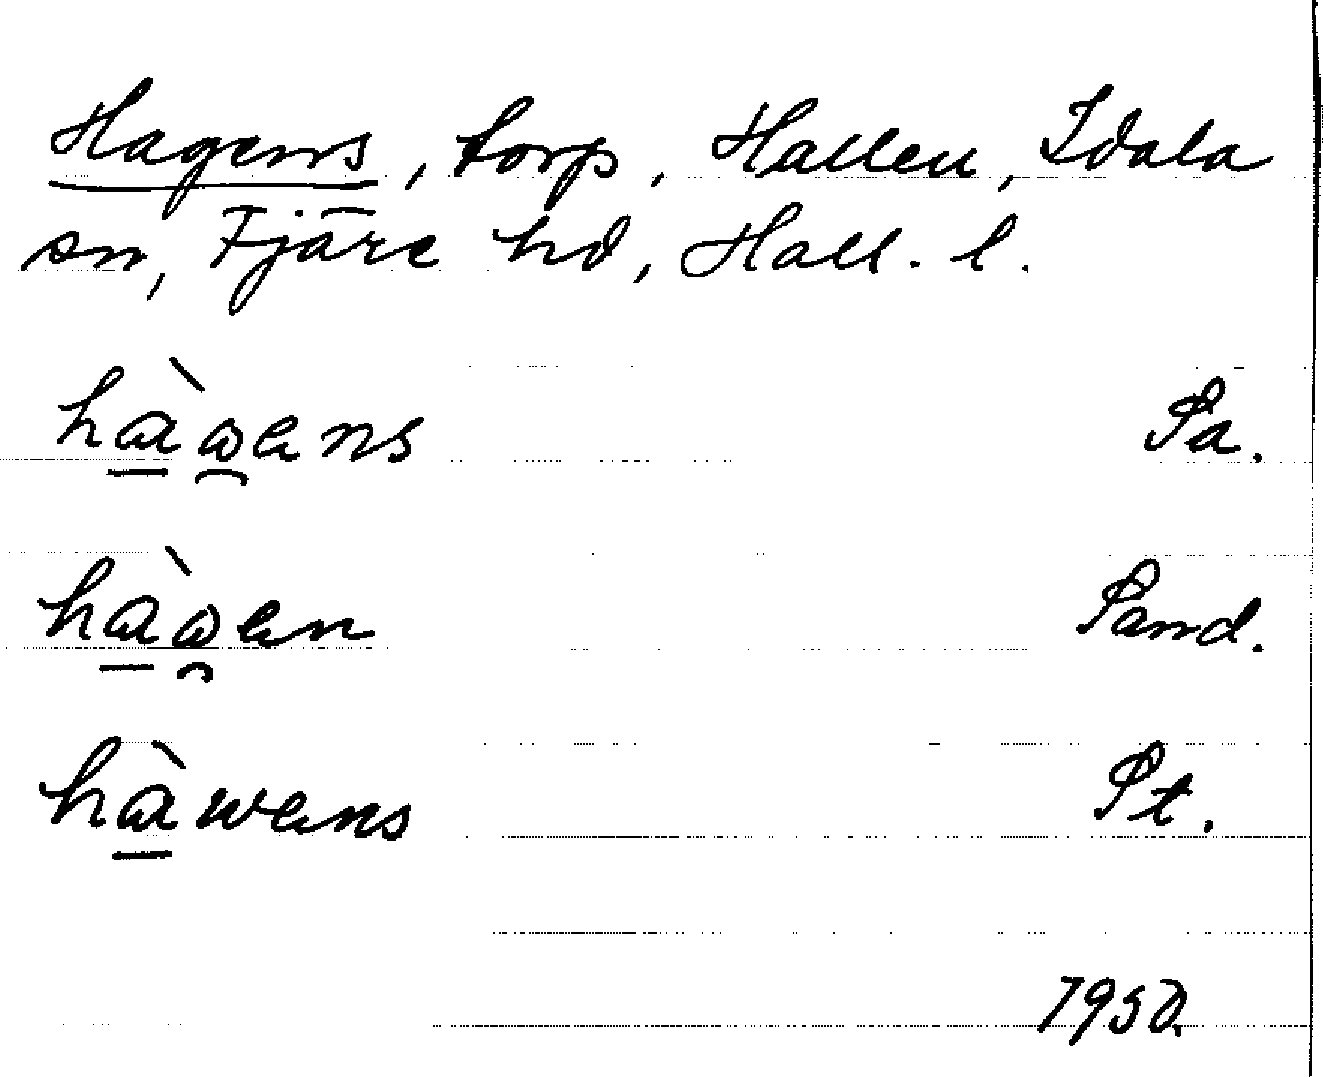 Hagens, torp, Hallen, Idala
sn, Fjäre hd, Hall. l.
hàwens Pa.
hàwen Pand.
hàwens Pt.
1950.